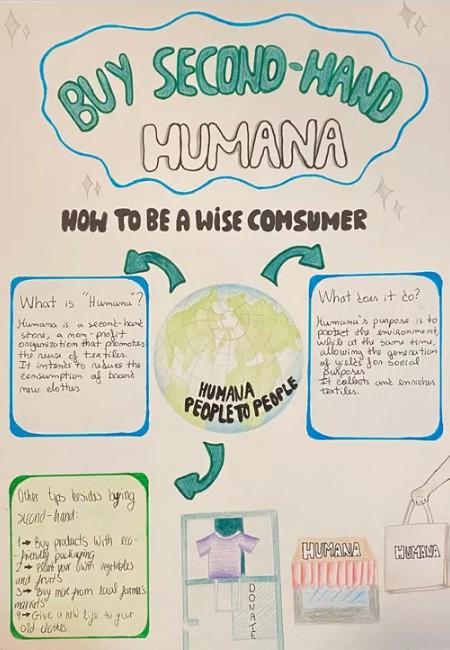 BUY SECOND-HAND
HUMANA
HOW TO BE A WISE COMSUMER
What is "Humana"?
Humana is a second-hand
store, a non-profit
organization that promotes
the reuse of textiles.
It intends to reduce the
consumption of brand
new clothes
What does it do?
Humana's purpose is to
protect the environment,
while at the same time,
allowing the generation
of for social
purposes
It collects and enriches
textiles.
HUMANA
PEOPLE TO PEOPLE
Other tips besides buying
second-hand:
1→ Buy products with eco-
-friendly packaging
2→ Plant your own vegetables
and fruits
3→ Buy more from local farmers
markets
4→ Give a new life to your
old clothes
DONATE
HUMANA
HUMANA